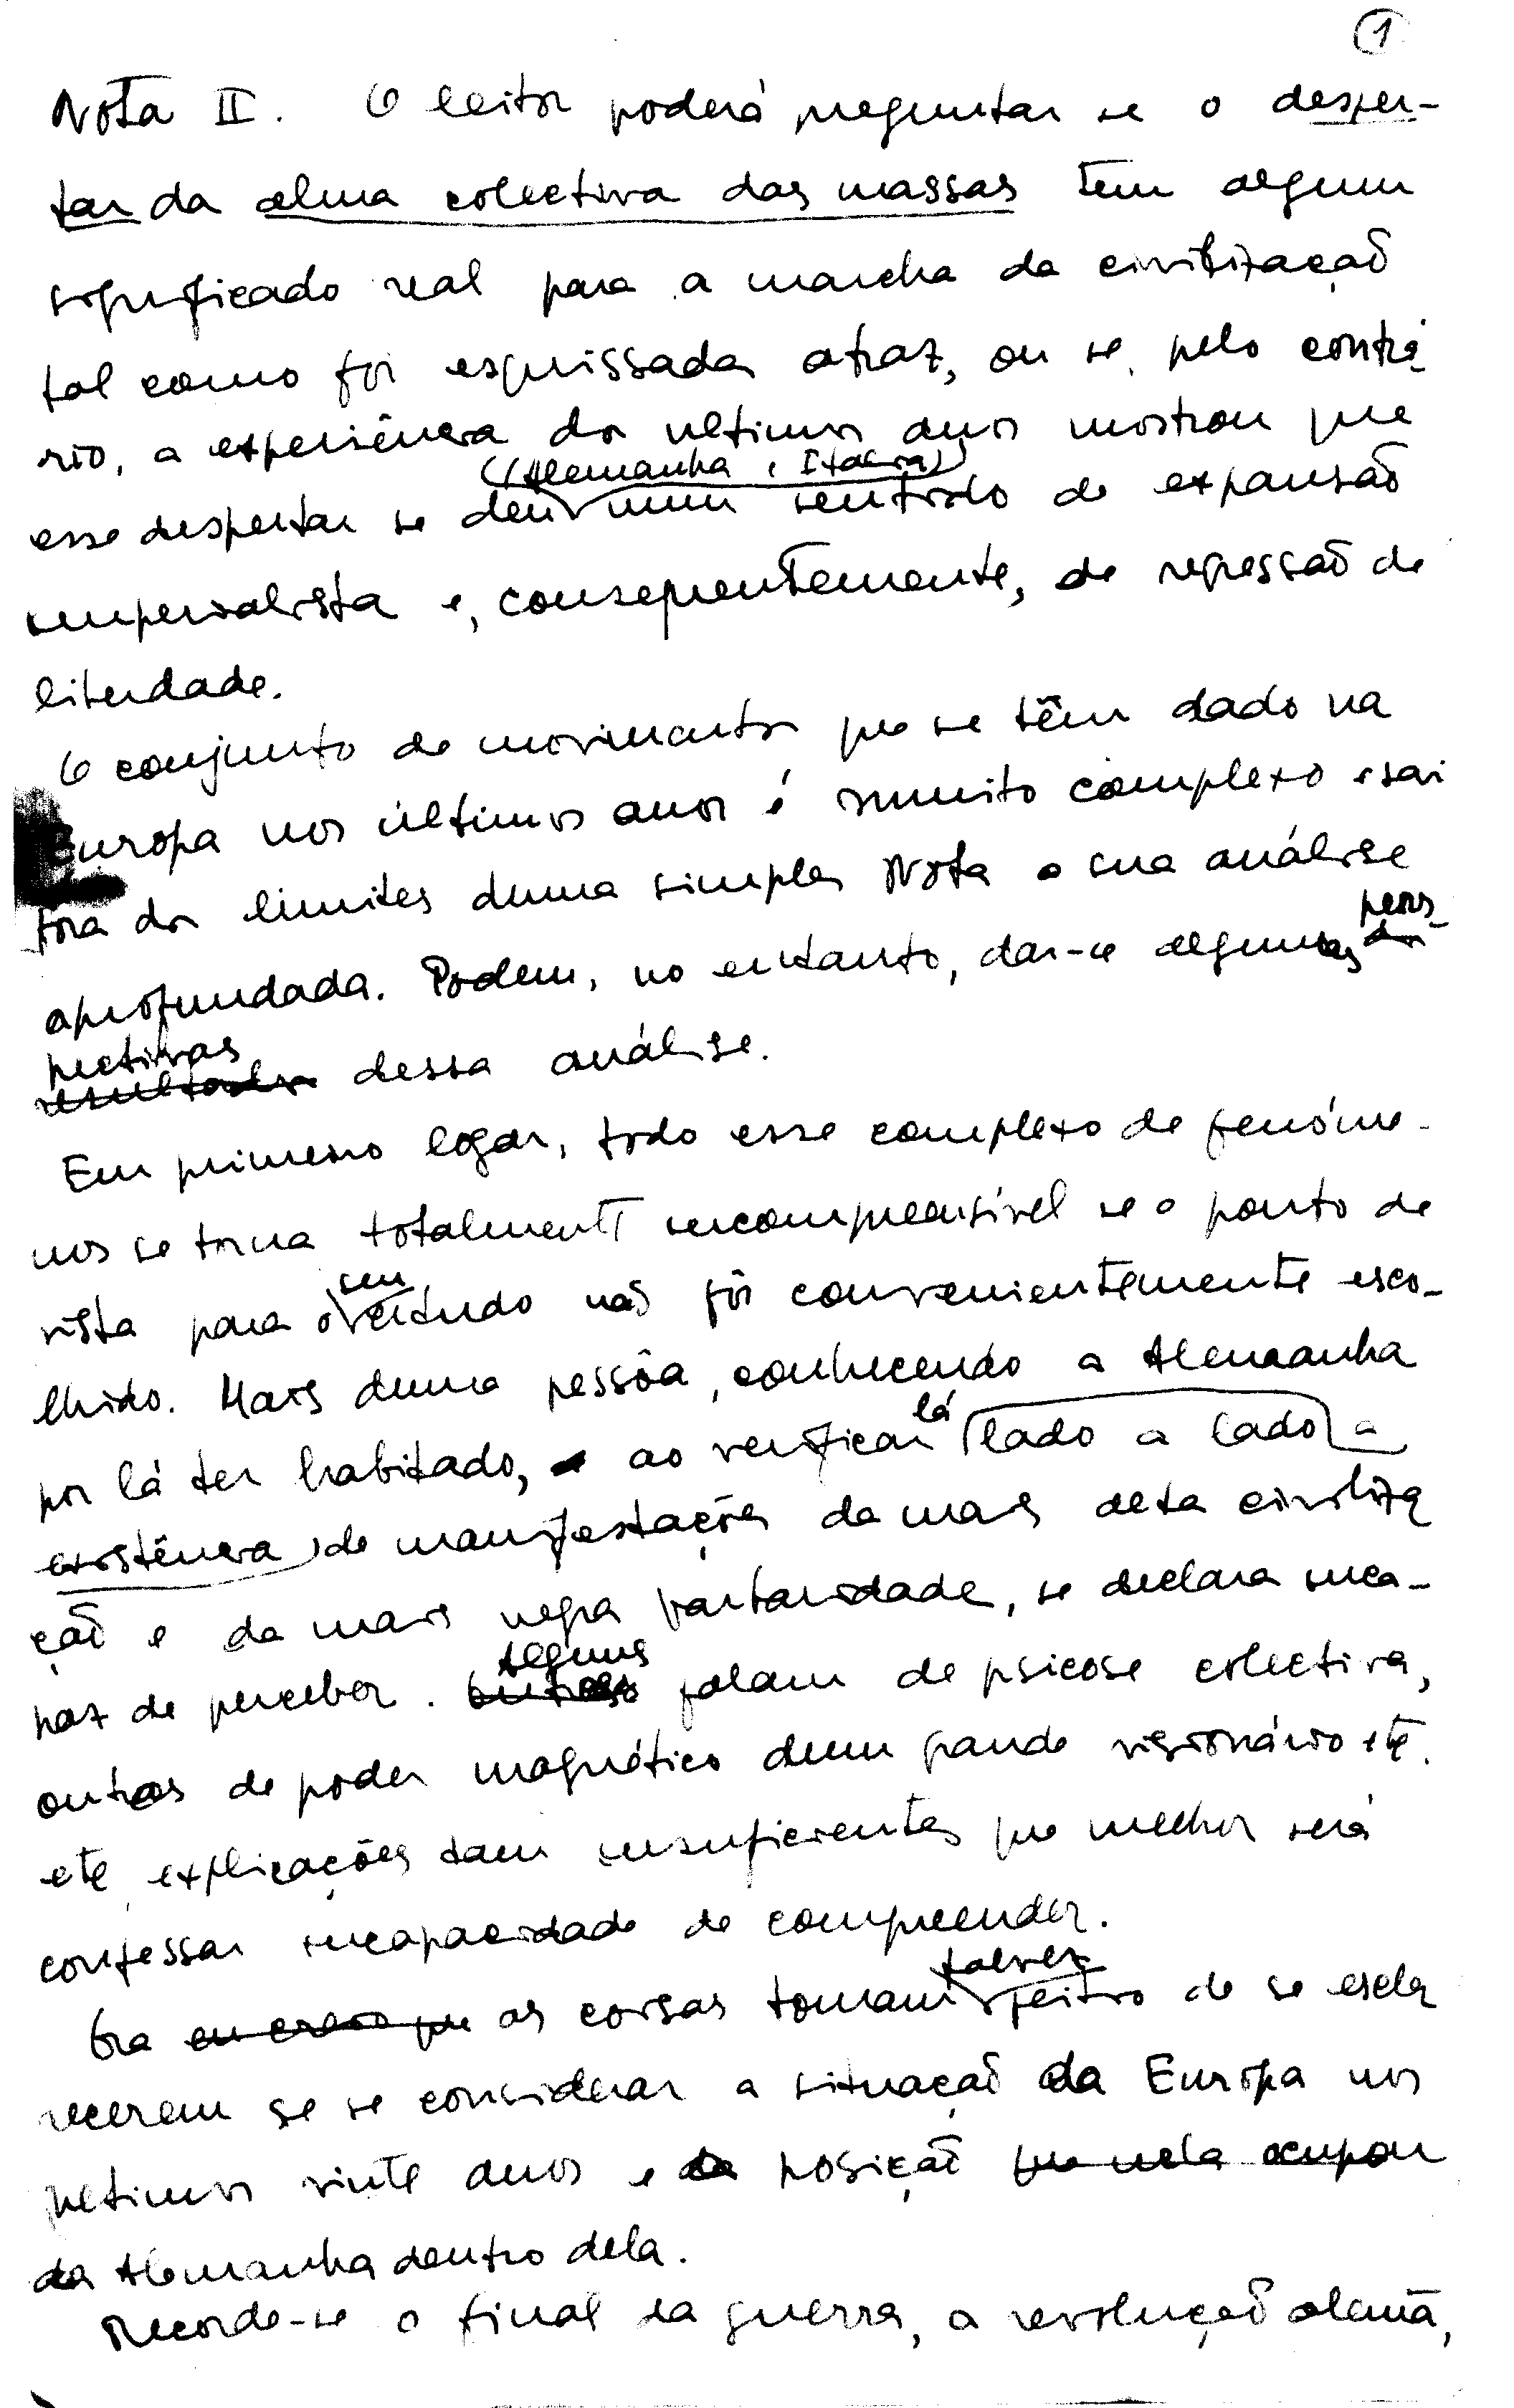 1
Nota II. O leitor poderá preguntar se o desper-
tar da alma colectiva das massas tem algum
significado real para a marcha da civilização
tal como foi esquissada atraz, ou se, pelo contrá-
rio, a experiência dos ultimos anos mostrou que
(Alemanha e Italia)
esse despertar se deu num sentido de expansão
imperialista e, consequentemente, de repressão de
liberdade.
O conjunto de movimentos que se têm dado na
Europa nos últimos anos é muito complexo e sai
fora dos limites duma simples Nota a sua análise
pers-
aprofundada. Podem, no entanto, dar-se algumas dos
pectivas
resultados dessa análise.
Em primeiro logar, todo esse complexo de fenóme-
nos se torna totalmente incompreensível se o ponto de
seu
vista para o estudo não fôr convenientemente esco-
lhido. Mais duma pessôa, conhecendo a Alemanha
lá
por lá ter habitado, ao verificar lado a lado a
existência de manifestações da mais alta civiliza
ção e da mais negra barbaridade, se declara inca-
Alguns
paz de perceber. Outros falam de psicose colectiva,
outros de poder magnético dum grande visionário etc.
etc, explicações tam insuficientes que melhor será
confessar incapacidade de compreender.
talvez
Ora eu creio que as coisas tomam geitro de se escla
recerem se se considerar a situação da Europa nos
ultimos vinte anos e da posição que nela ocupou
da Alemanha dentro dela.
Recorde-se o final da guerra, a revolução alemã,